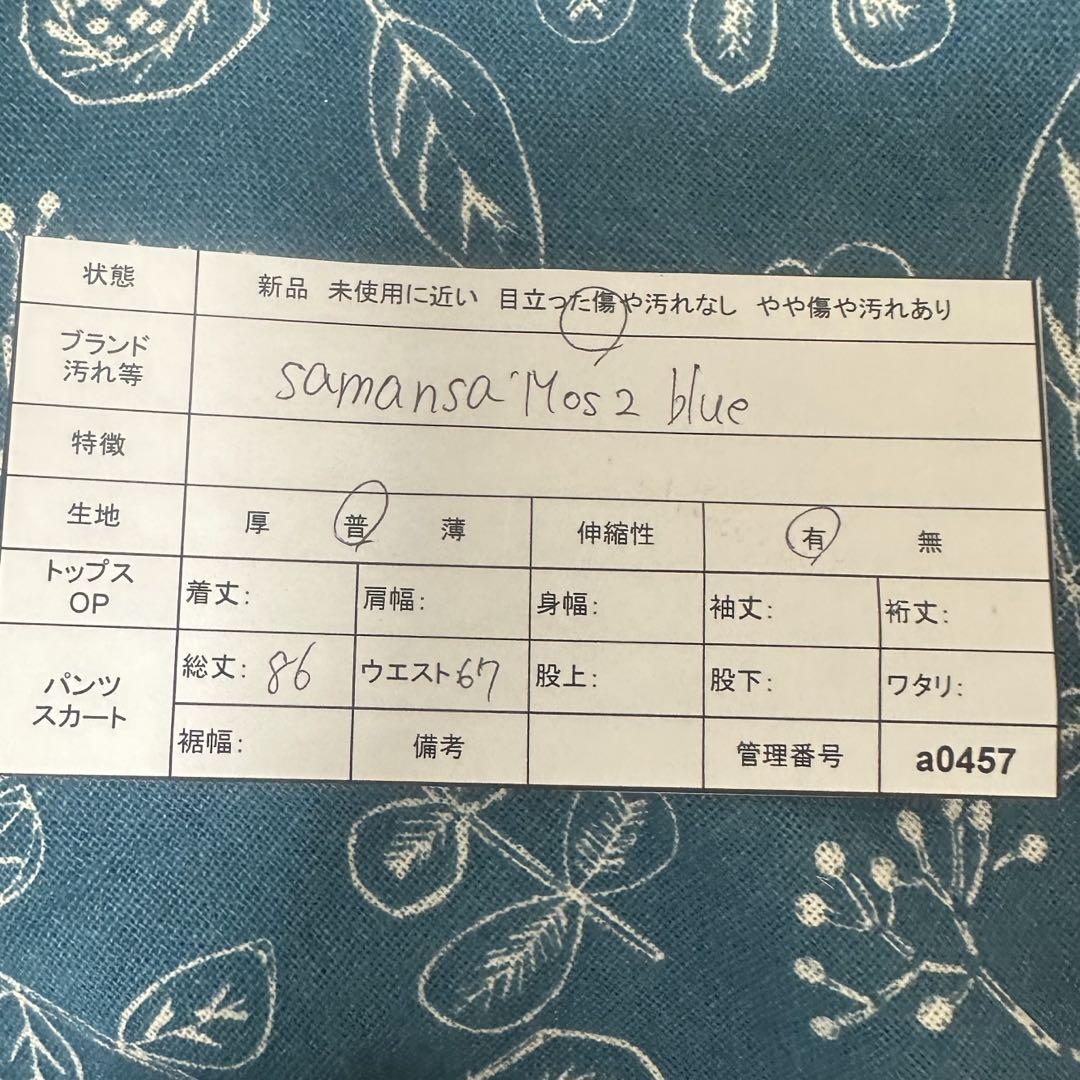 状態 新品 未使用に近い 目立った傷や汚れなし やや傷や汚れあり
ブランド
汚れ等
samansa Mos2 blue
特徴
生地 厚 普 薄 伸縮性 有 無
トップス
OP
着丈: 肩幅: 身幅: 袖丈: 裄丈:
パンツ
スカート
総丈: 86 ウエスト67 股上: 股下: ワタリ:
裾幅: 備考 管理番号 a0457